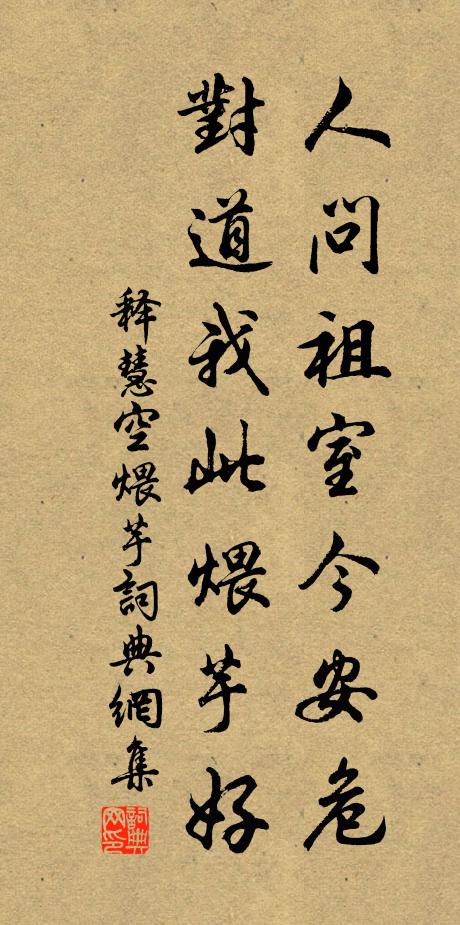 人問祖室今安危
對道我此煨芋好
释慧空煨芋詞典網集
詞典網印